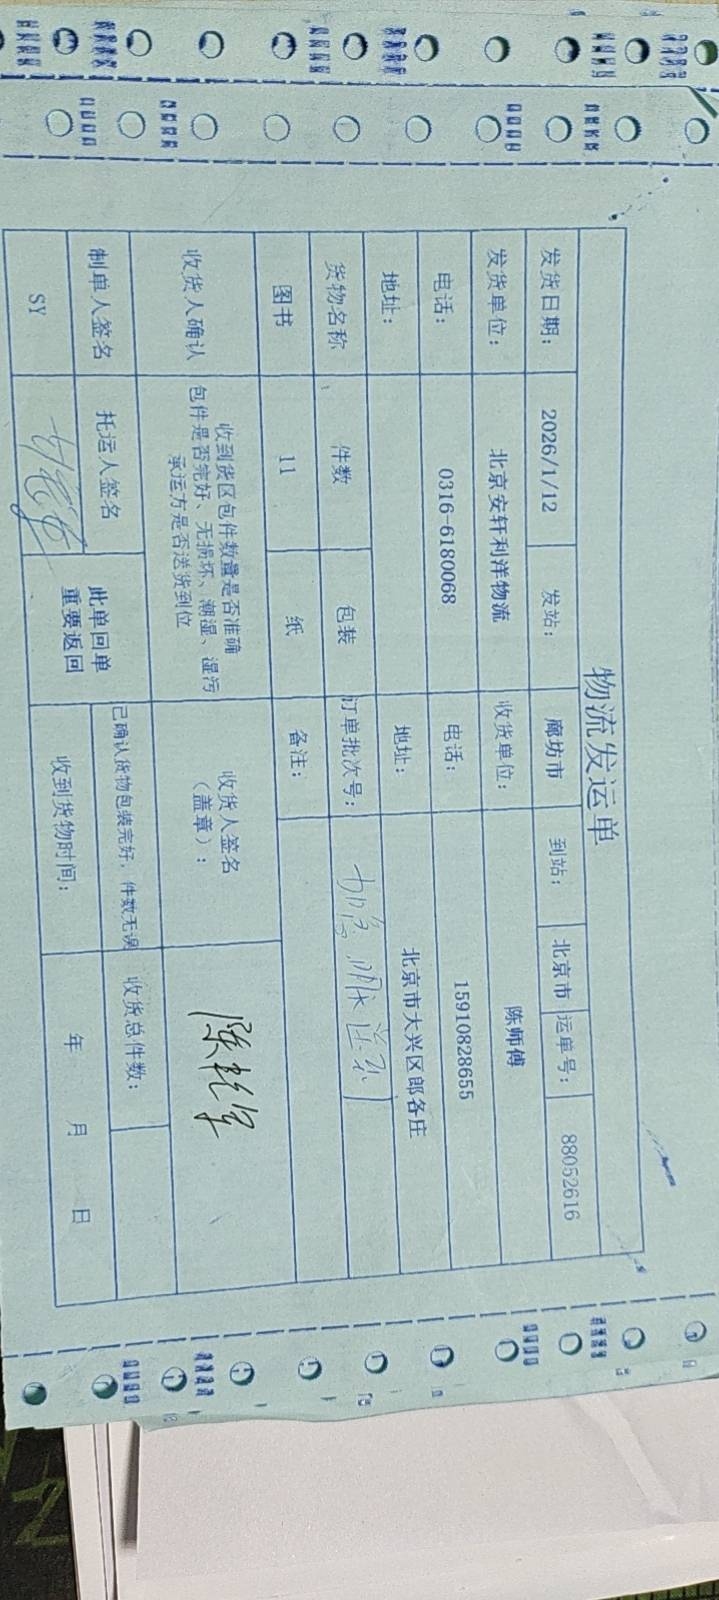 物流发运单
发货日期： 2026/1/12 发站： 廊坊市 到站： 北京市 运单号： 88052616
发货单位： 北京安轩利洋物流 收货单位： 陈师傅
电话： 0316-6180068 电话： 15910828655
地址： 地址： 北京市大兴区郎各庄
货物名称 件数 包装 订单批次号：
图书 11 纸 备注：
收货人确认 收到货区包件数量是否准确 收货人签名
包件是否完好、无损坏、潮湿、湿污 （盖章）：
承运方是否送货到位
制单人签名 托运人签名 此单回单 已确认货物包装完好，件数无误 收货总件数：
重要返回
SY 收到货物时间： 年 月 日